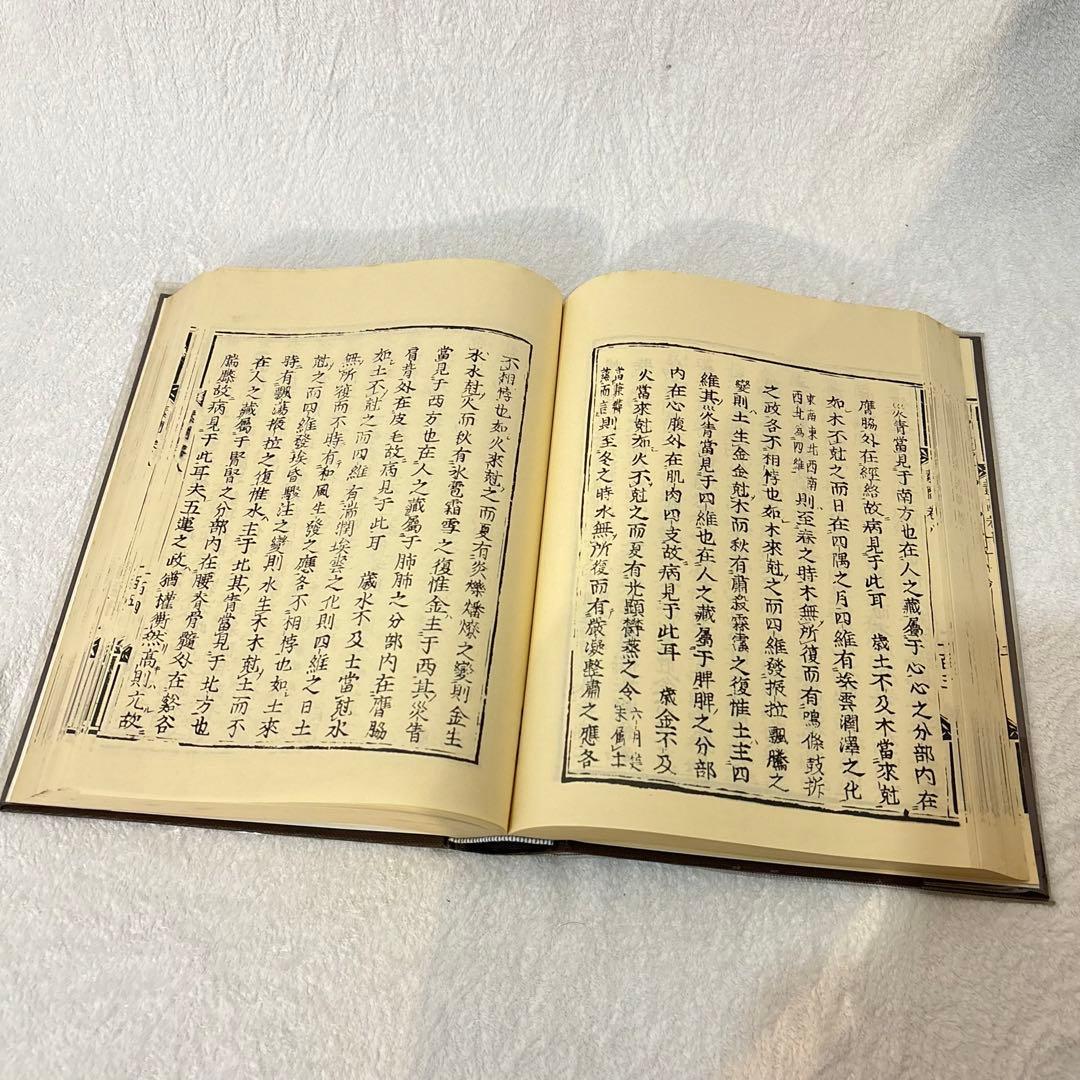 災眚當見于南方也在人之藏屬于心心之分部內在
膺脇外在經絡故病見于此耳　歳土不及木當來尅
如木不尅之而日在四隅之月四維有埃雲潤澤之化
東南東北西南
西北為四維
則至春之時木無所復而有鳴條鼓拆
之政各不相悖也如木來尅之而四維發振拉飄騰之
變則土生金金尅木而秋有肅殺霖霪之復惟土主四
維其災眚當見于四維也在人之藏屬于脾脾之分部
內在心腹外在肌肉四支故病見于此耳　歳金不及
火當來尅如火不尅之而夏有光顯欝蒸之令
六月
屬土
而言
則至冬之時水無所復而有嚴凝整肅之應各
不相悖也如火來尅之而夏有炎爍燔燎之變則金生
水水尅火而秋有氷雹霜雪之復惟金主于西其災眚
當見于西方也在人之藏屬于肺肺之分部內在膺脇
肩背外在皮毛故病見于此耳　歳水不及土當尅水
如土不尅之而四維有湍潤埃雲之化則四維之日土
無所復而不時有和風生發之應各不相悖也如土來
尅之而四維發埃昏驟注之變則水生木木尅土而不
時有飄蕩振拉之復惟水主于北其眚當見于北方也
在人之藏屬于腎腎之分部內在腰脊骨髓外在谿谷
腨膝故病見于此耳夫五運之政猶權衡然高則亢故